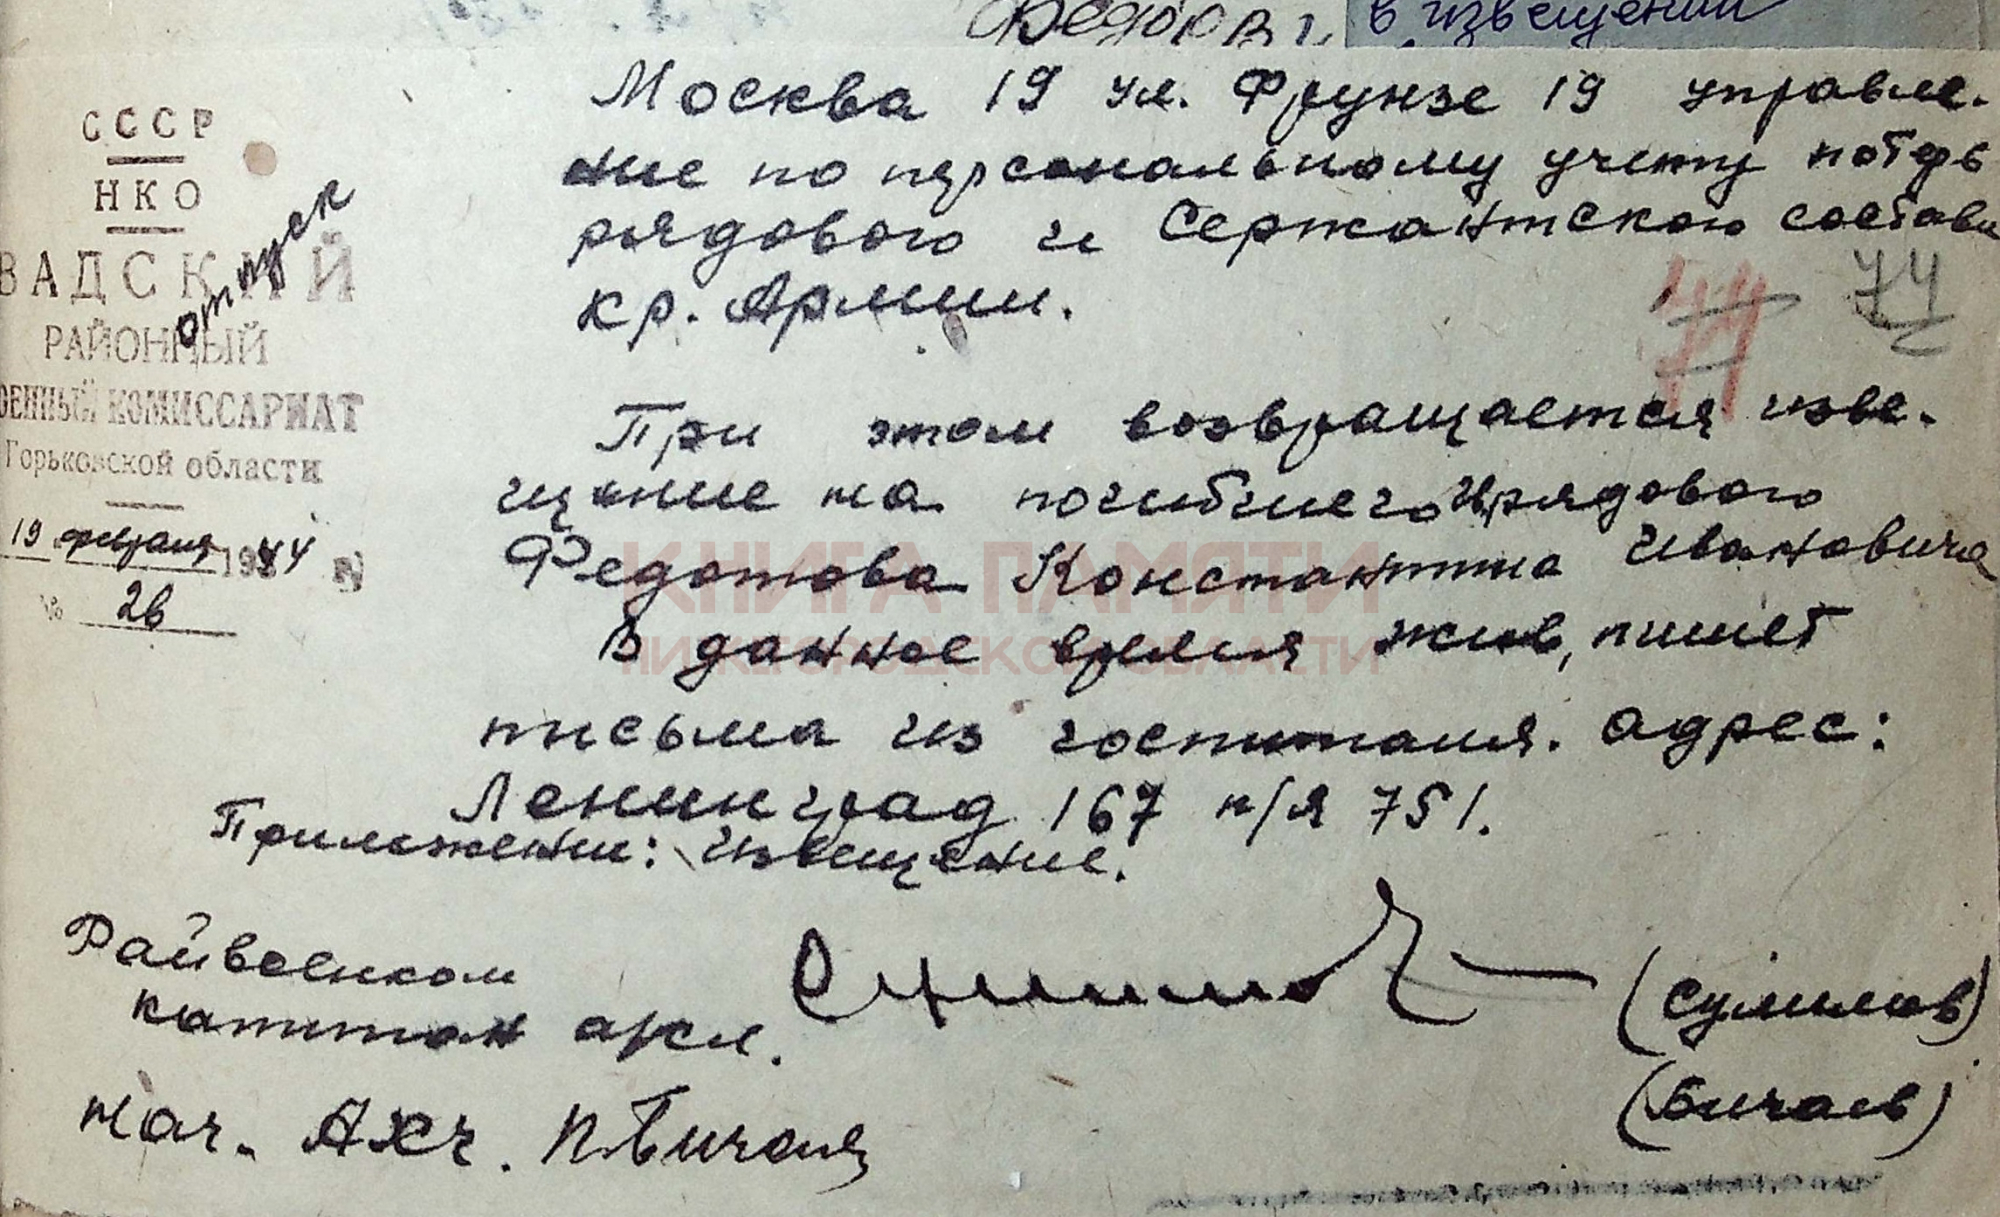 в извещении
СССР
НКО
ВАДСКИЙ
РАЙОННЫЙ
ОЕННЫЙ КОМИССАРИАТ
Горьковской области
19 февраля 1944
№ 26
отпуск
Москва 19 ул. Фрунзе 19 управле-
ние по персональному учету потерь
рядового и Сержантского состава
кр. Армии.
74
При этом возвращается изве-
щение на погибшего рядового
Федотова Константина Ивановича
В данное время жив, пишет
письма из госпиталя. адрес:
Ленинград 167 п/я 751.
Приложение: извещение.
Райвоенком
капитан адм.
(Сумилов)
нач. АХЧ.
(Бичаев)
КНИГА ПАМЯТИ
НИЖЕГОРОДСКОЙ ОБЛАСТИ